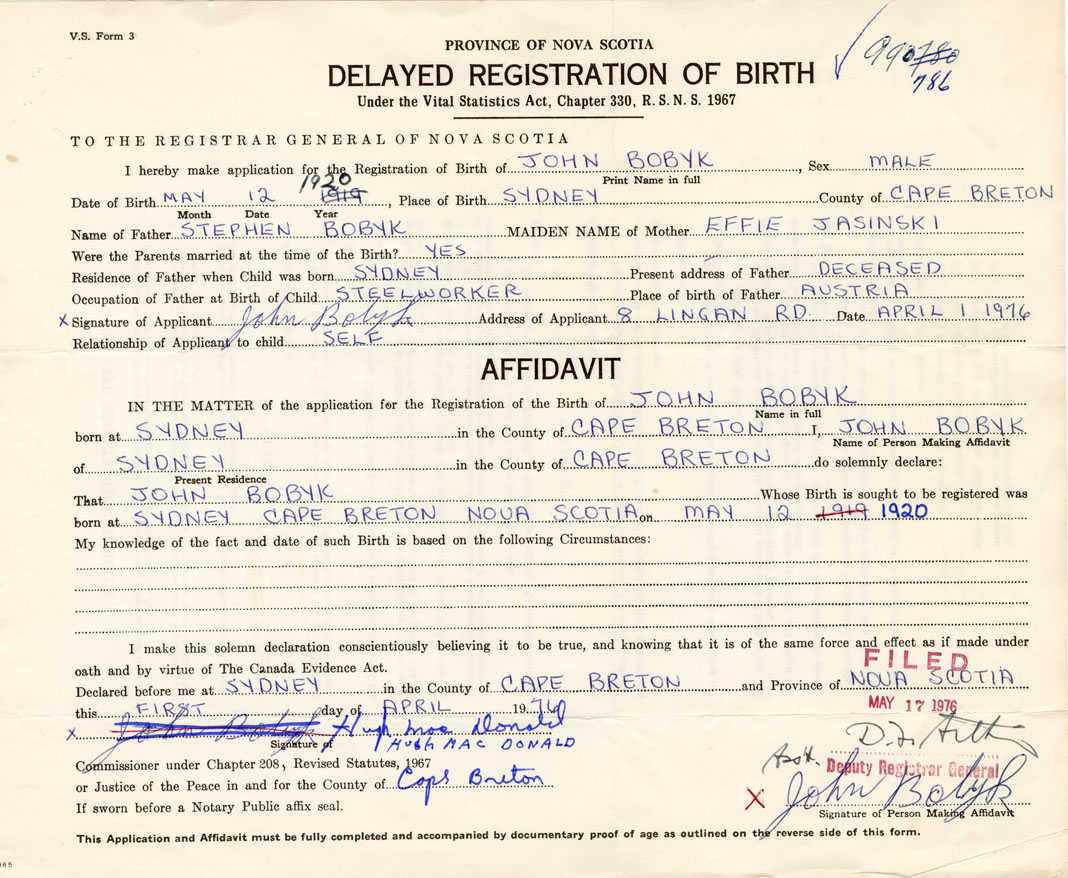 V.S. Form 3
PROVINCE OF NOVA SCOTIA
DELAYED REGISTRATION OF BIRTH
Under the Vital Statistics Act, Chapter 330, R.S.N.S. 1967
990780
786
TO THE REGISTRAR GENERAL OF NOVA SCOTIA
I hereby make application for the Registration of Birth of JOHN BOBYK, Sex MALE
Print Name in full
1920
Date of Birth MAY 12 1919, Place of Birth SYDNEY County of CAPE BRETON
Month Date Year
Name of Father STEPHEN BOBYK MAIDEN NAME of Mother EFFIE JASINSKI
Were the Parents married at the time of the Birth? YES
Residence of Father when Child was born SYDNEY Present address of Father DECEASED
Occupation of Father at Birth of Child STEELWORKER Place of birth of Father AUSTRIA
X Signature of Applicant John Bobyk Address of Applicant 8 LINGAN RD. Date APRIL 1 1976
Relationship of Applicant to child SELF
AFFIDAVIT
IN THE MATTER of the application for the Registration of the Birth of JOHN BOBYK
Name in full
born at SYDNEY in the County of CAPE BRETON I, JOHN BOBYK
Name of Person Making Affidavit
of SYDNEY in the County of CAPE BRETON do solemnly declare:
Present Residence
That JOHN BOBYK Whose Birth is sought to be registered was
born at SYDNEY CAPE BRETON NOVA SCOTIA on MAY 12 1919 1920
My knowledge of the fact and date of such Birth is based on the following Circumstances:
I make this solemn declaration conscientiously believing it to be true, and knowing that it is of the same force and effect as if made under
oath and by virtue of The Canada Evidence Act.
FILED
Declared before me at SYDNEY in the County of CAPE BRETON and Province of NOVA SCOTIA
this FIRST day of APRIL 1976
MAY 17 1976
X John Bobyk Hugh Mac Donald
Signature of HUGH MAC DONALD
Commissioner under Chapter 208, Revised Statutes, 1967
Asst. Deputy Registrar General
or Justice of the Peace in and for the County of Cape Breton
X John Bobyk
If sworn before a Notary Public affix seal.
Signature of Person Making Affidavit
This Application and Affidavit must be fully completed and accompanied by documentary proof of age as outlined on the reverse side of this form.